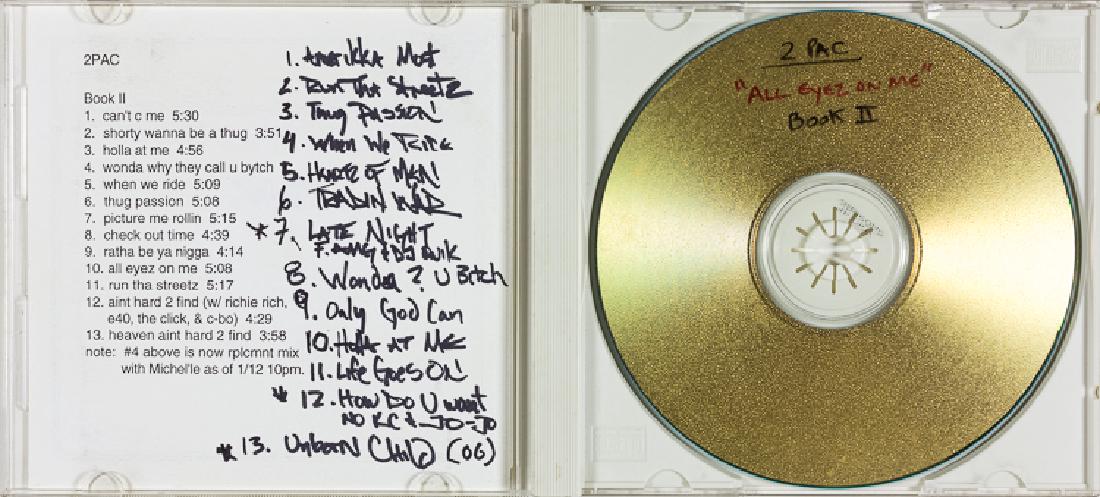 2PAC
Book II
1. can't c me 5:30
2. shorty wanna be a thug 3:51
3. holla at me 4:56
4. wonda why they call u bytch
5. when we ride 5:09
6. thug passion 5:08
7. picture me rollin 5:15
8. check out time 4:39
9. ratha be ya nigga 4:14
10. all eyez on me 5:08
11. run tha streetz 5:17
12. aint hard 2 find (w/ richie rich,
e40, the click, & c-bo) 4:29
13. heaven aint hard 2 find 3:58
note: #4 above is now rplcmnt mix
with Michel'le as of 1/12 10pm.
1. Amerikka Most
2. Run Tha Streetz
3. Thug Passion
4. When We Ride
5. Heartz of Men
6. TRADIN WAR
*7. LATE NIGHT
F. & DJ Quik
8. Wonda ? U Bitch
9. Only God Can
10. Holla AT Me
11. Life Goes ON
* 12. How Do U want
NO KC & JO-JO
*13. Unborn Child (OG)
2 PAC
"ALL EYEZ ON ME"
Book II